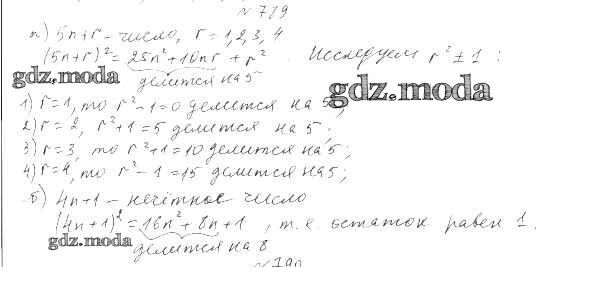 № 789
а) 5n+r - число, r = 1, 2, 3, 4
(5n+r)² = 25n² + 10nr + r². Исследуем r² ± 1 :
gdz.moda делится на 5
gdz.moda
1) r=1, то r²-1=0 делится на 5;
2) r=2, r²+1=5 делится на 5;
3) r=3, то r²+1=10 делится на 5;
4) r=4, то r²-1=15 делится на 5;
б) 4n+1 - нечётное число
(4n+1)² = 16n² + 8n + 1, т.е. остаток равен 1.
gdz.moda делится на 8